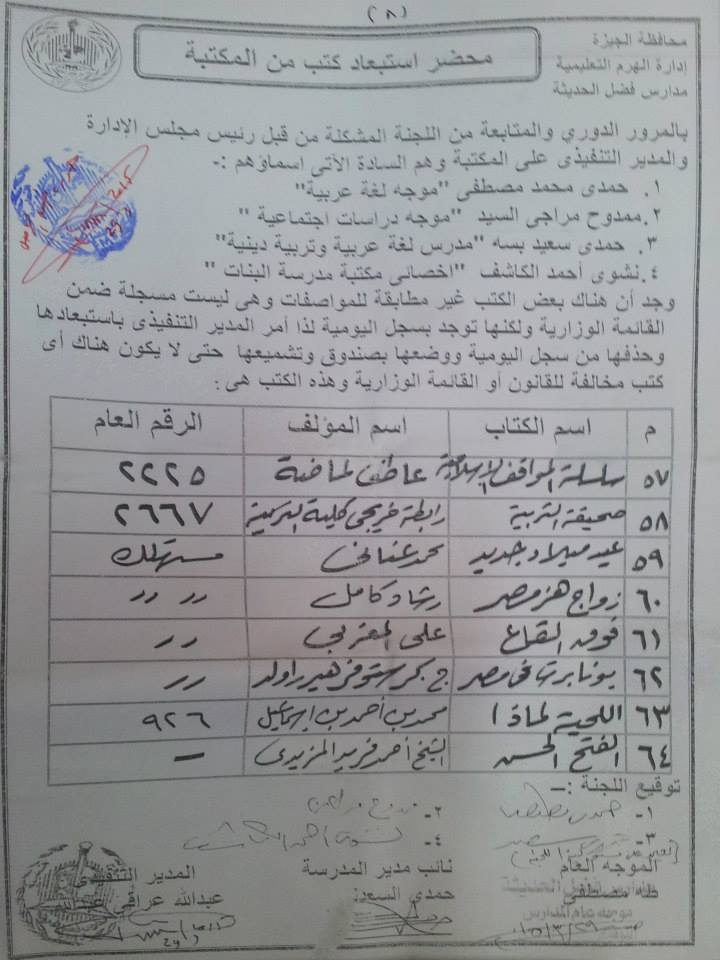 (٨)
محافظة الجيزة
إدارة الهرم التعليمية
مدارس فضل الحديثة
محضر استبعاد كتب من المكتبة
بالمرور الدوري والمتابعة من اللجنة المشكلة من قبل رئيس مجلس الإدارة
والمدير التنفيذى على المكتبة وهم السادة الآتى اسماؤهم :-
١. حمدى محمد مصطفى "موجه لغة عربية"
٢.ممدوح مراجى السيد "موجه دراسات اجتماعية "
٣. حمدى سعيد بسه "مدرس لغة عربية وتربية دينية"
٤.نشوى أحمد الكاشف "اخصائى مكتبة مدرسة البنات "
وجد أن هناك بعض الكتب غير مطابقة للمواصفات وهى ليست مسجلة ضمن
القائمة الوزارية ولكنها توجد بسجل اليومية لذا أمر المدير التنفيذى باستبعادها
وحذفها من سجل اليومية ووضعها بصندوق وتشميعها حتى لا يكون هناك أى
كتب مخالفة للقانون أو القائمة الوزارية وهذه الكتب هى:
م اسم الكتاب اسم المؤلف الرقم العام
٥٧ سلسلة المواقف الإسلامية عاطف لماضة ٢٢٢٥
٥٨ صحيفة التربية رابطة خريجى كلية التربية ٢٦٦٧
٥٩ عيد ميلاد جديد محمد عنانى مستهلك
٦٠ زواج هز مصر رشاد كامل 〃 〃
٦١ فوق القاع على المغربي 〃
٦٢ بونابرت فى مصر ج كرستوفر هيرولد 〃
٦٣ اللحية لماذا محمد بن أحمد بن إسماعيل ٩٢٦
٦٤ الفتح الحسن الشيخ أحمد فريد المزيدى -
توقيع اللجنة :-
١-
٢-
٣-
٤-
الموجه العام نائب مدير المدرسة المدير التنفيذى
طه مصطفى حمدي السعدنى عبدالله عرافى
موجه عام المدارس